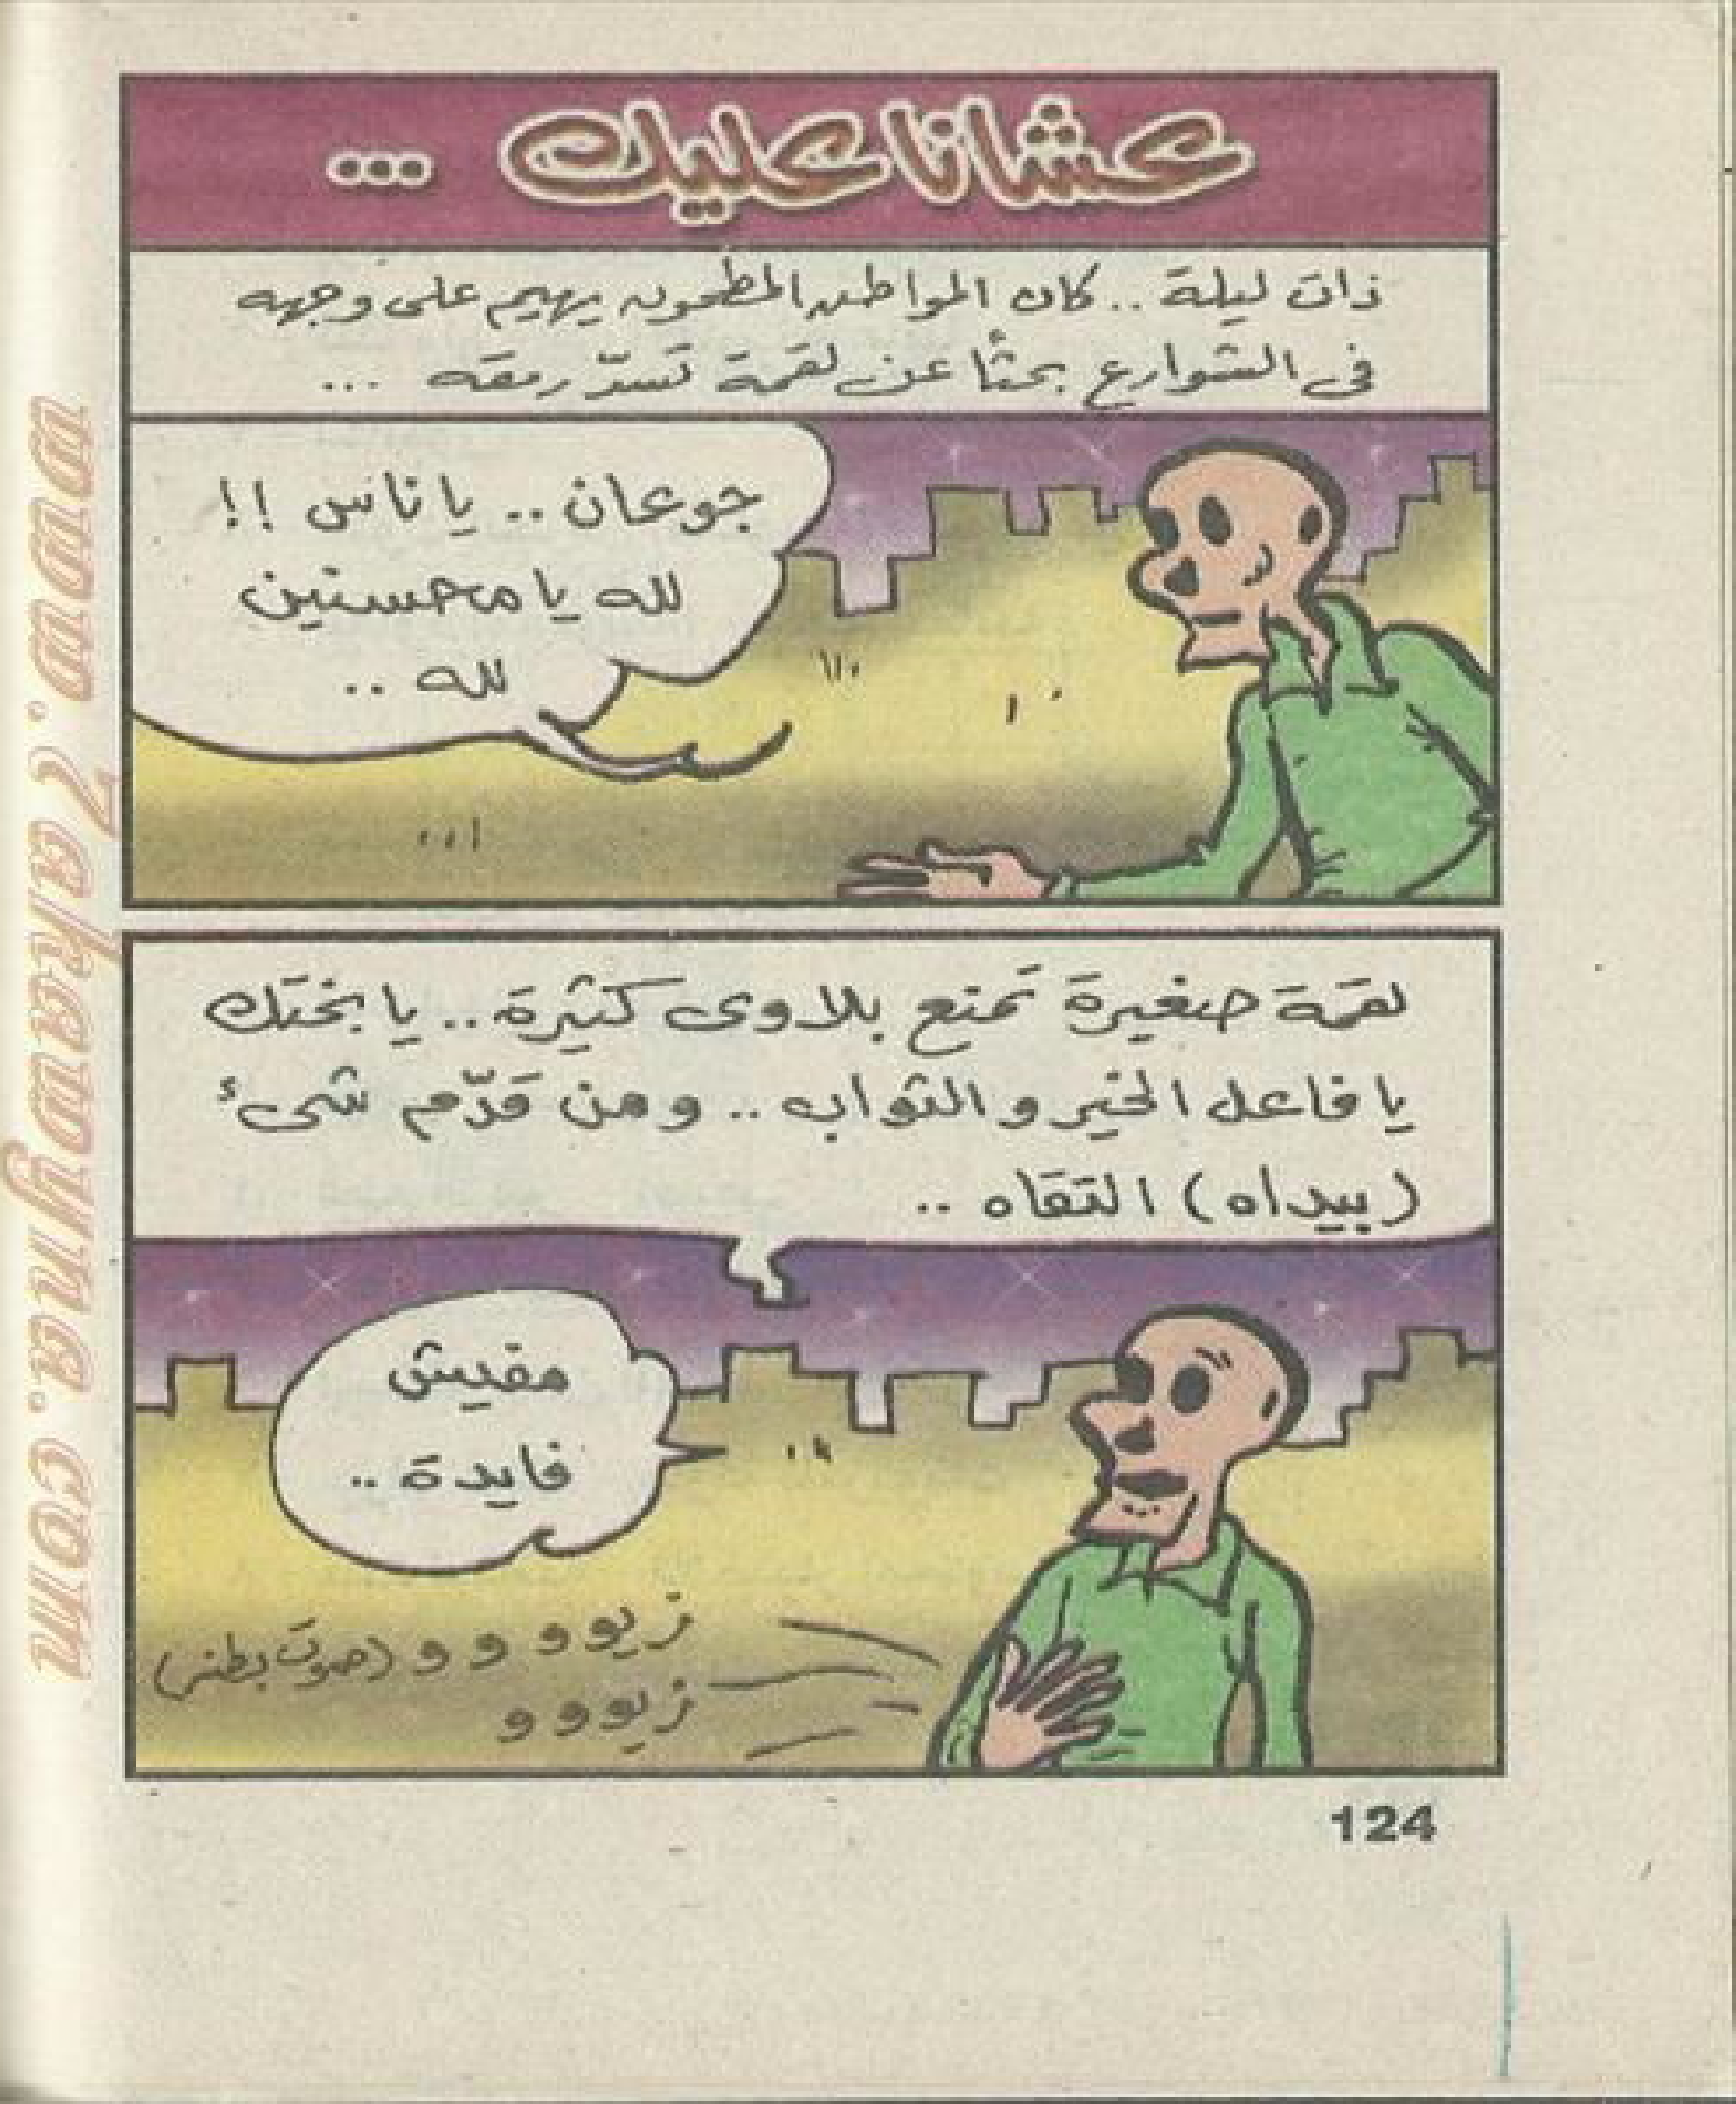 عشانا عليك ...
ذات ليلة .. كان المواطن المطحون يهيم على وجهه
فى الشوارع بحثًا عن لقمة تسدّ رمقه ...
جوعان .. يا ناس !!
لله يا محسنين
لله ..
لقمة صغيرة تمنع بلاوى كثيرة .. يا بختك
يا فاعل الخير والثواب .. ومن قدّم شىء
(بيداه) التقاه ..
مفيش
فايدة ..
زيوو و و و (صوت بطنه)
زيووو و
124
www.7akawyna.com